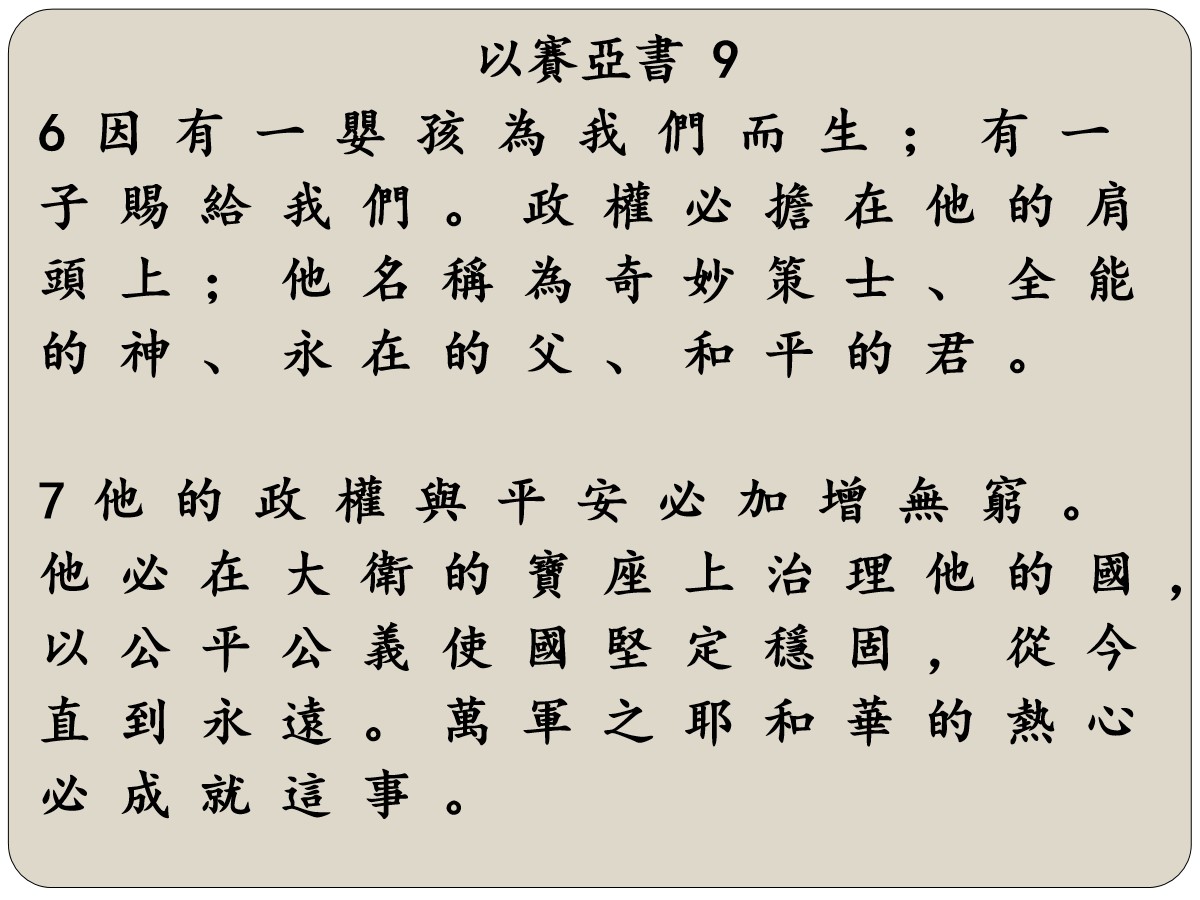 以賽亞書 9
6 因 有 一 嬰 孩 為 我 們 而 生 ； 有 一
子 賜 給 我 們 。 政 權 必 擔 在 他 的 肩
頭 上 ； 他 名 稱 為 奇 妙 策 士 、 全 能
的 神 、 永 在 的 父 、 和 平 的 君 。
7 他 的 政 權 與 平 安 必 加 增 無 窮 。
他 必 在 大 衛 的 寶 座 上 治 理 他 的 國 ，
以 公 平 公 義 使 國 堅 定 穩 固 ， 從 今
直 到 永 遠 。 萬 軍 之 耶 和 華 的 熱 心
必 成 就 這 事 。